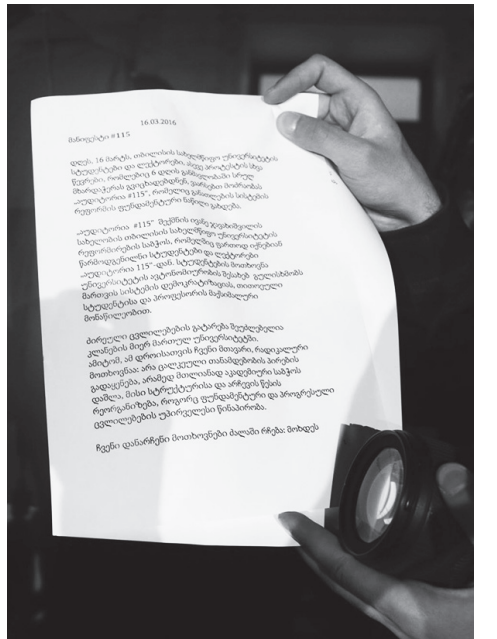 16.03.2016
მანიფესტი #115
დღეს, 16 მარტს, თბილისის სახელმწიფო უნივერსიტეტის
სტუდენტები და ლექტორები, ასევე პროტესტის სხვა
წევრები, რომლებიც 6 დღის განმავლობაში სრულ
მხარდაჭერას გვიცხადებდნენ, ვაარსებთ მოძრაობას
„აუდიტორია #115“, რომელიც განათლების სისტემის
რეფორმის ფუნდამენტური ნაწილი გახდება.
„აუდიტორია #115“ შექმნის ივანე ჯავახიშვილის
სახელობის თბილისის სახელმწიფო უნივერსიტეტის
რეფორმირების საბჭოს, რომელშიც ფართოდ იქნებიან
წარმოდგენილნი სტუდენტები და ლექტორები
„აუდიტორია 115“-დან. სტუდენტების მოთხოვნა
უნივერსიტეტის ავტონომიურობის შესახებ გულისხმობს
მართვის სისტემის დემოკრატიზაციას, თითოეული
სტუდენტისა და პროფესორის მაქსიმალური
მონაწილეობით.
ძირეული ცვლილებების გატარება შეუძლებელია
კლანების მიერ მართულ უნივერსიტეტში.
ამიტომ, ამ დროისათვის ჩვენი მთავარი, რადიკალური
მოთხოვნაა: არა ცალკეული თანამდებობის პირების
გადაყენება, არამედ მთლიანად აკადემიური საბჭოს
დაშლა, მისი სტრუქტურისა და არჩევის წესის
რეორგანიზება, როგორც ფუნდამენტური და პროგრესული
ცვლილებების უპირველესი წინაპირობა.
ჩვენი დანარჩენი მოთხოვნები ძალაში რჩება: მოხდეს